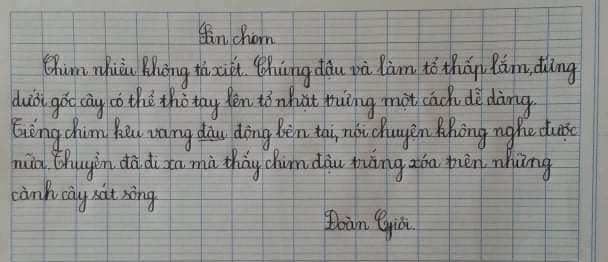 Sân chim
Chim nhiều không tả xiết. Chúng đậu và làm tổ thấp lắm, đứng
dưới gốc cây có thể thò tay lên tổ nhặt trứng một cách dễ dàng.
Tiếng chim kêu vang đậu động bên tai, nói chuyện không nghe được
nữa. Thuyền đã đi xa mà thấy chim đậu trắng xóa trên những
cành cây sát sông
Đoàn Giỏi.